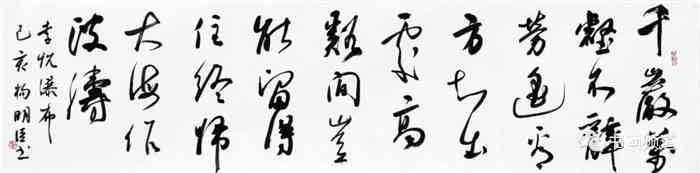 千巖萬
壑不辭
勞遠看
方知出
處高
谿間豈
能留得
住終歸
大海作
波濤
李忱瀑布
己亥楊明臣书
书画频道